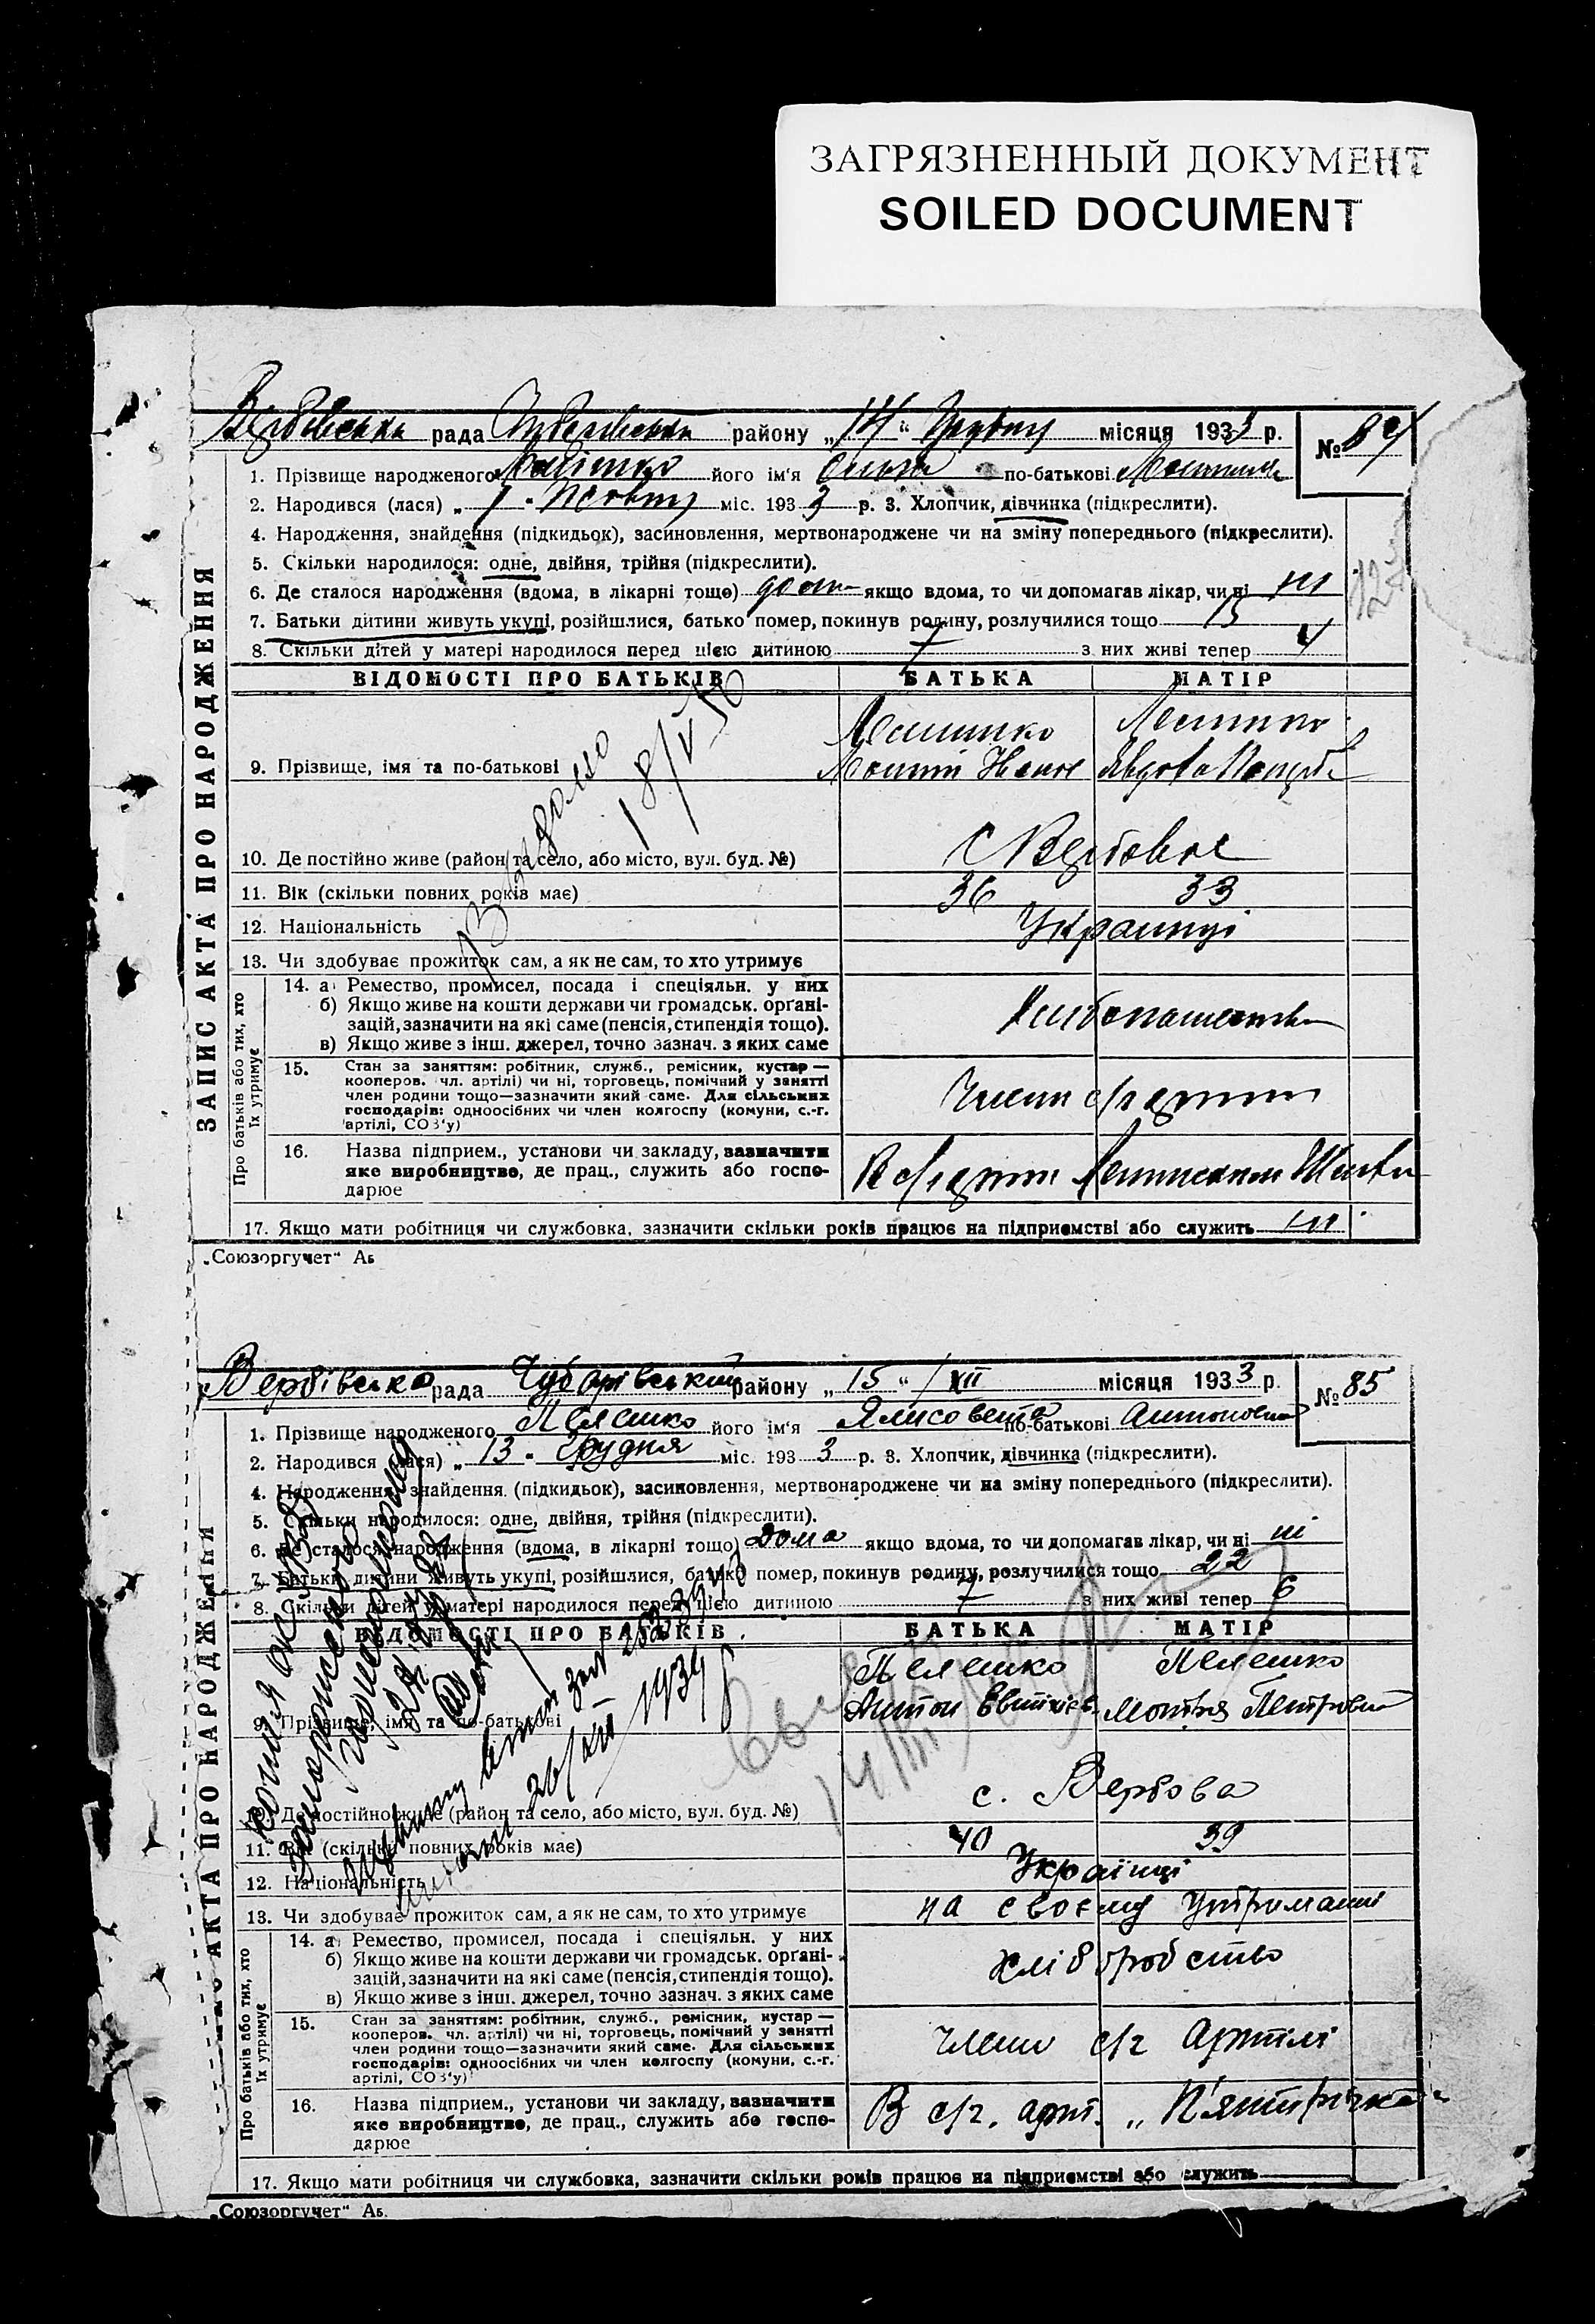 ЗАГРЯЗНЕННЫЙ ДОКУМЕНТ
SOILED DOCUMENT
ЗАПИС АКТА ПРО НАРОДЖЕННЯ
Вербівська рада Чубарівський району „14“ Грудня місяця 1933 р. № 84
1. Прізвище народженого його ім‘я Ольга по-батькові
2. Народився (лася) „7“ міс. 1933 р. 3. Хлопчик, дівчинка (підкреслити).
4. Народження, знайдення (підкидьок), засиновлення, мертвонароджене чи на зміну попереднього (підкреслити).
5. Скільки народилося: одне, двійня, трійня (підкреслити).
6. Де сталося народження (вдома, в лікарні тощо) дома якщо вдома, то чи допомагав лікар, чи ні ні
7. Батьки дитини живуть укупі, розійшлися, батько помер, покинув родину, розлучилися тощо 15
8. Скільки дітей у матері народилося перед цією дитиною 7 з них живі тепер
ВІДОМОСТІ ПРО БАТЬКІВ БАТЬКА МАТІР
9. Прізвище, імя та по-батькові
18/V 50
10. Де постійно живе (район та село, або місто, вул. буд. №) с Вербове
11. Вік (скільки повних років має) 36 33
12. Національність Українці
13. Чи здобуває прожиток сам, а як не сам, то хто утримує
Про батьків або тих, хто їх утримує
14. а) Ремество, промисел, посада і спеціяльн. у них
б) Якщо живе на кошти держави чи громадськ. орґані-
зацій, зазначити на які саме (пенсія, стипендія тощо).
в) Якщо живе з інш. джерел, точно зазнач. з яких саме
Хлібопашество
15. Стан за заняттям: робітник, служб., ремісник, кустар —
кооперов. чл. артілі) чи ні, торговець, помічний у занятті
член родини тощо—зазначити який саме. Для сільських
господарів: одноосібних чи член колгоспу (комуни, с.-г.
артілі, СОЗ‘у)
Члени с/г артіли
16. Назва підприєм., установи чи закладу, зазначити
яке виробництво, де прац., служить або госпо-
дарює
В с/г артіли
17. Якщо мати робітниця чи службовка, зазначити скільки років працює на підприємстві або служить ні
„Союзоргучет“ Аб
ЗАПИС АКТА ПРО НАРОДЖЕННЯ
Вербівська рада Чубарівський району „15“ XII місяця 1933 р. № 85
1. Прізвище народженого Пелешко його ім‘я Ялисовета по-батькові Антоновна
2. Народився (лася) „13“ Грудня міс. 1933 р. 3. Хлопчик, дівчинка (підкреслити).
4. Народження, знайдення (підкидьок), засиновлення, мертвонароджене чи на зміну попереднього (підкреслити).
5. Скільки народилося: одне, двійня, трійня (підкреслити).
6. Де сталося народження (вдома, в лікарні тощо) Дома якщо вдома, то чи допомагав лікар, чи ні ні
7. Батьки дитини живуть укупі, розійшлися, батько помер, покинув родину, розлучилися тощо 22
8. Скільки дітей у матері народилося перед цією дитиною 7 з них живі тепер 6
ВІДОМОСТІ ПРО БАТЬКІВ БАТЬКА МАТІР
Пелешко Пелешко
9. Прізвище, імя та по-батькові Антон Евтихієв Мотря Петровна
26/XII 1939
10. Де постійно живе (район та село, або місто, вул. буд. №) с. Вербова
11. Вік (скільки повних років має) 40 39
12. Національність Українці
13. Чи здобуває прожиток сам, а як не сам, то хто утримує на своєму утриманні
Про батьків або тих, хто їх утримує
14. а) Ремество, промисел, посада і спеціяльн. у них
б) Якщо живе на кошти держави чи громадськ. орґані-
зацій, зазначити на які саме (пенсія, стипендія тощо).
в) Якщо живе з інш. джерел, точно зазнач. з яких саме
хліборобство
15. Стан за заняттям: робітник, служб., ремісник, кустар —
кооперов. чл. артілі) чи ні, торговець, помічний у занятті
член родини тощо—зазначити який саме. Для сільських
господарів: одноосібних чи член колгоспу (комуни, с.-г.
артілі, СОЗ‘у)
члени с/г Артілі
16. Назва підприєм., установи чи закладу, зазначити
яке виробництво, де прац., служить або госпо-
дарює
В с/г. арт. „П'ятирічка“
17. Якщо мати робітниця чи службовка, зазначити скільки років працює на підприємстві або служить
„Союзоргучет“ Аб.